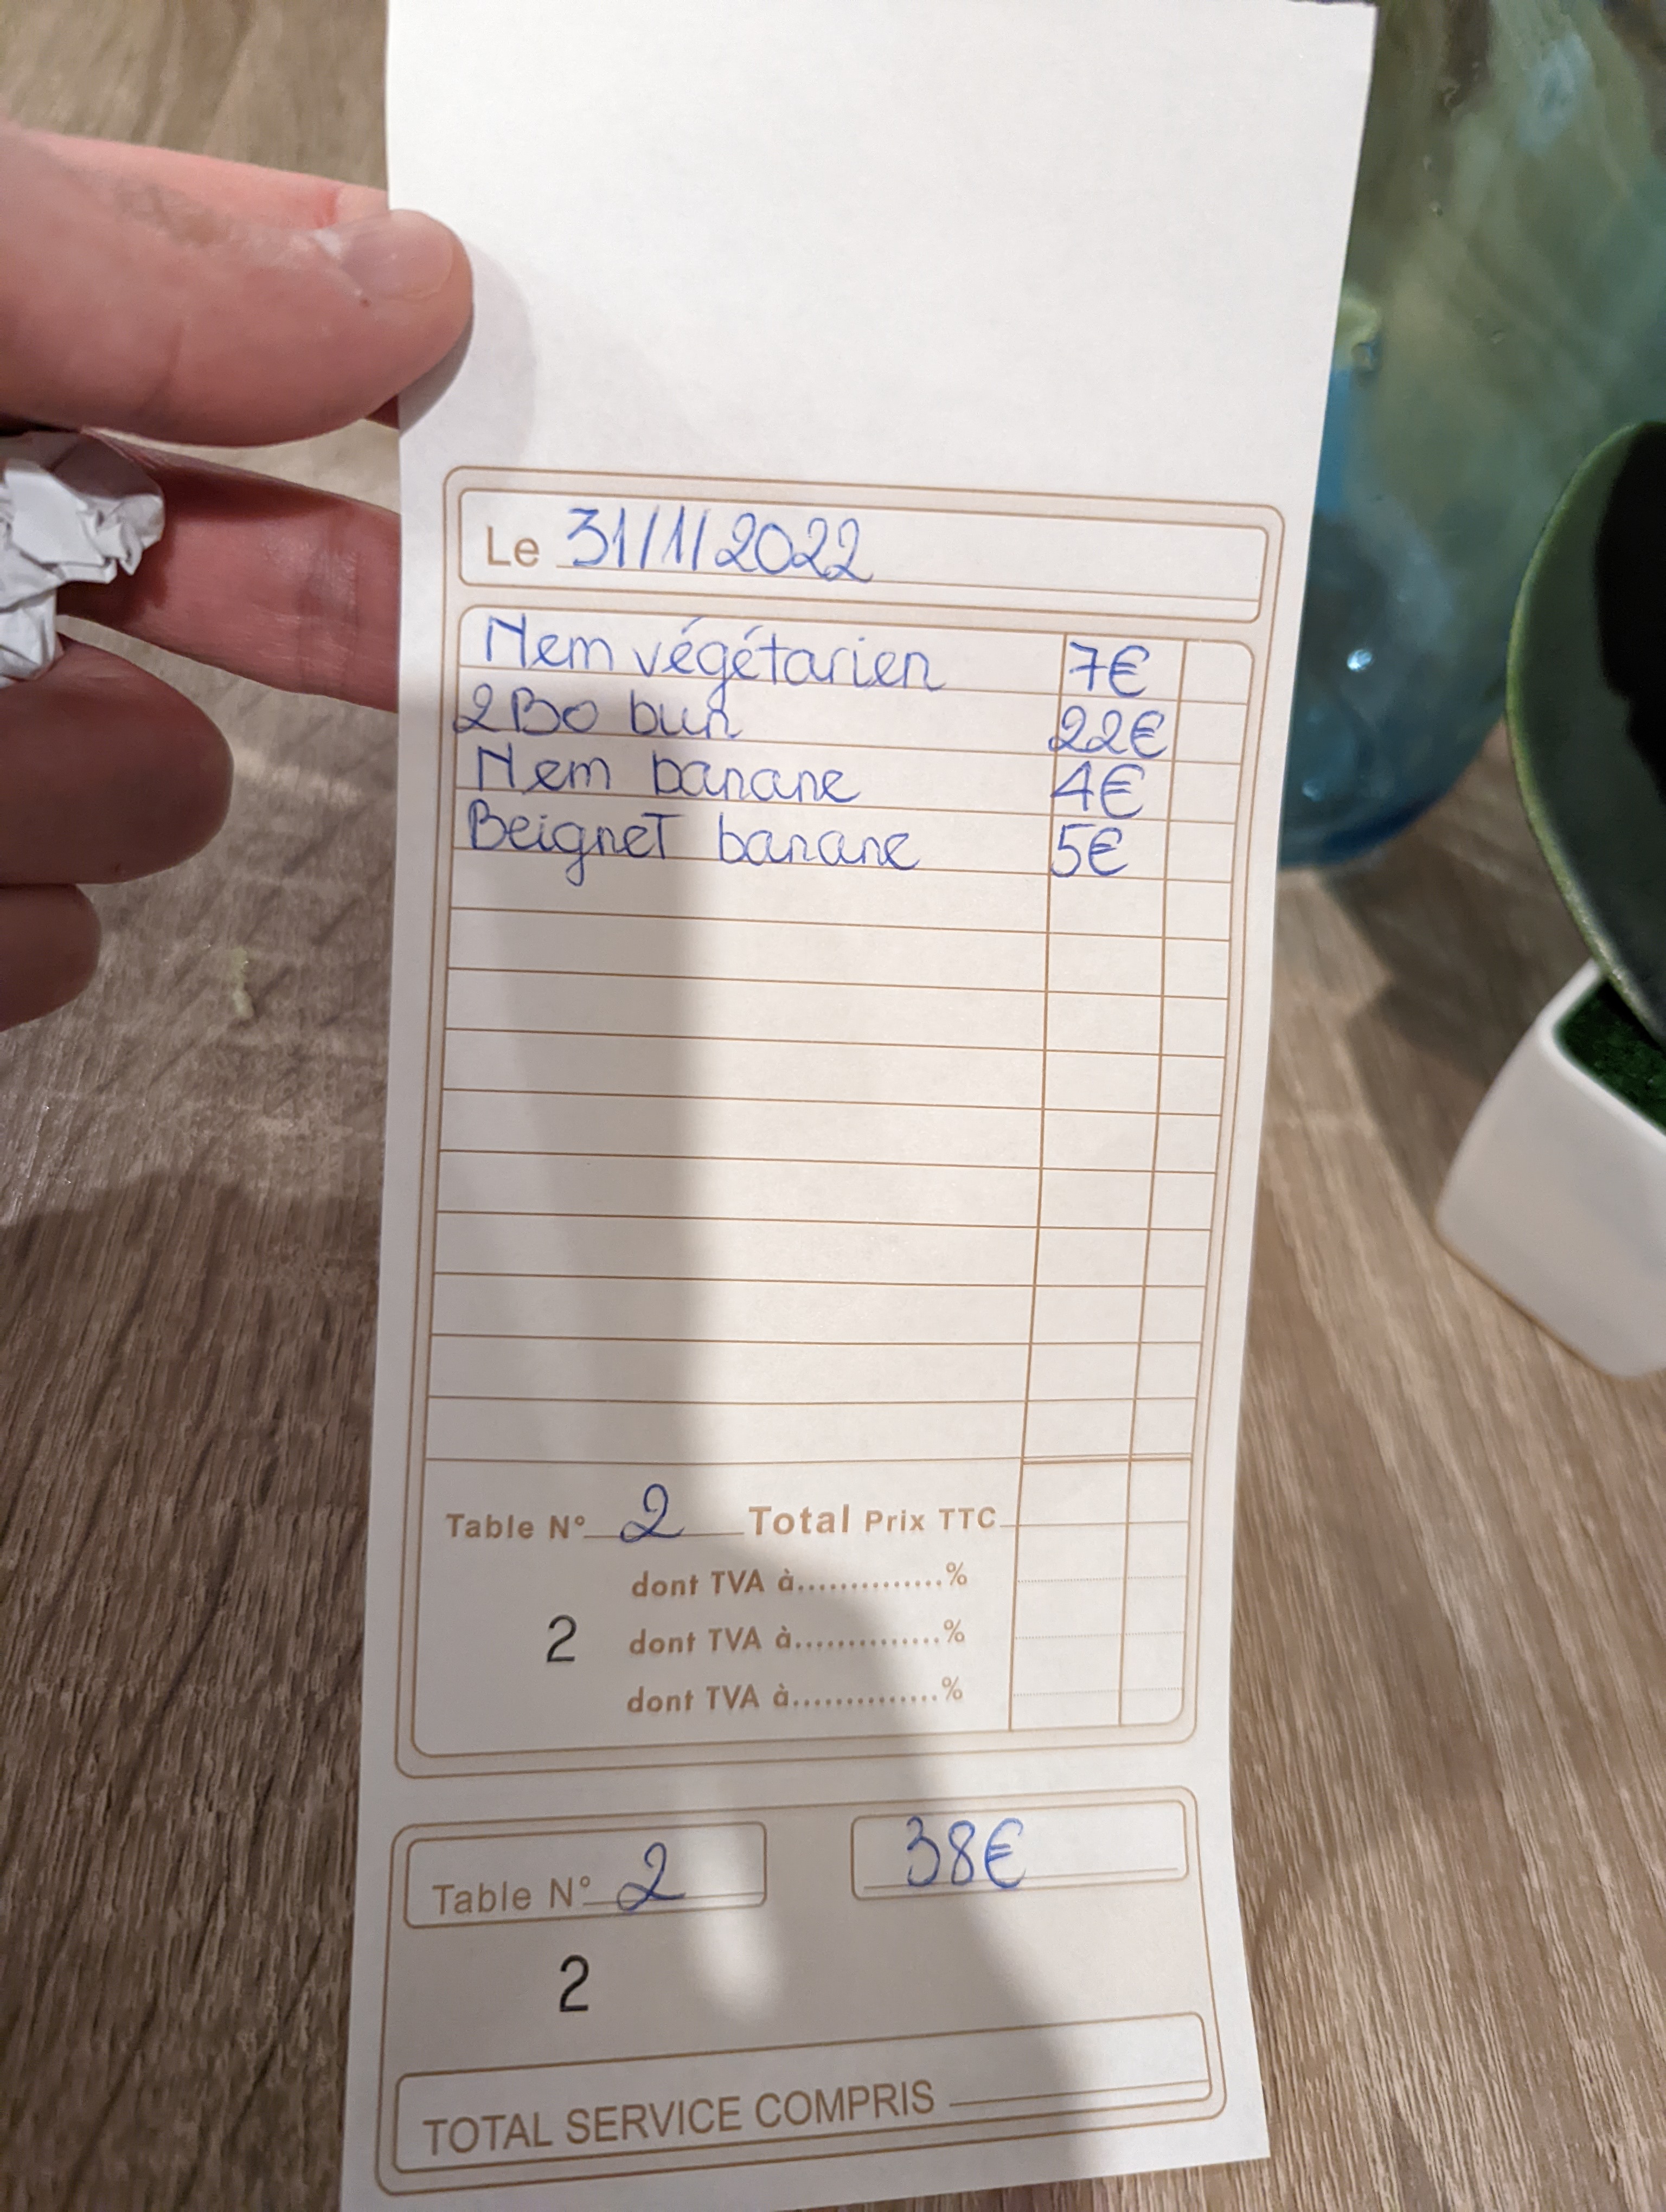 Le 31/1/2022
Nem végétarien 7€
2 Bo bun 22€
Nem banane 4€
Beignet banane 5€
Table N° 2 Total Prix TTC
dont TVA à..............%
2 dont TVA à..............%
dont TVA à..............%
Table N° 2 38€
2
TOTAL SERVICE COMPRIS